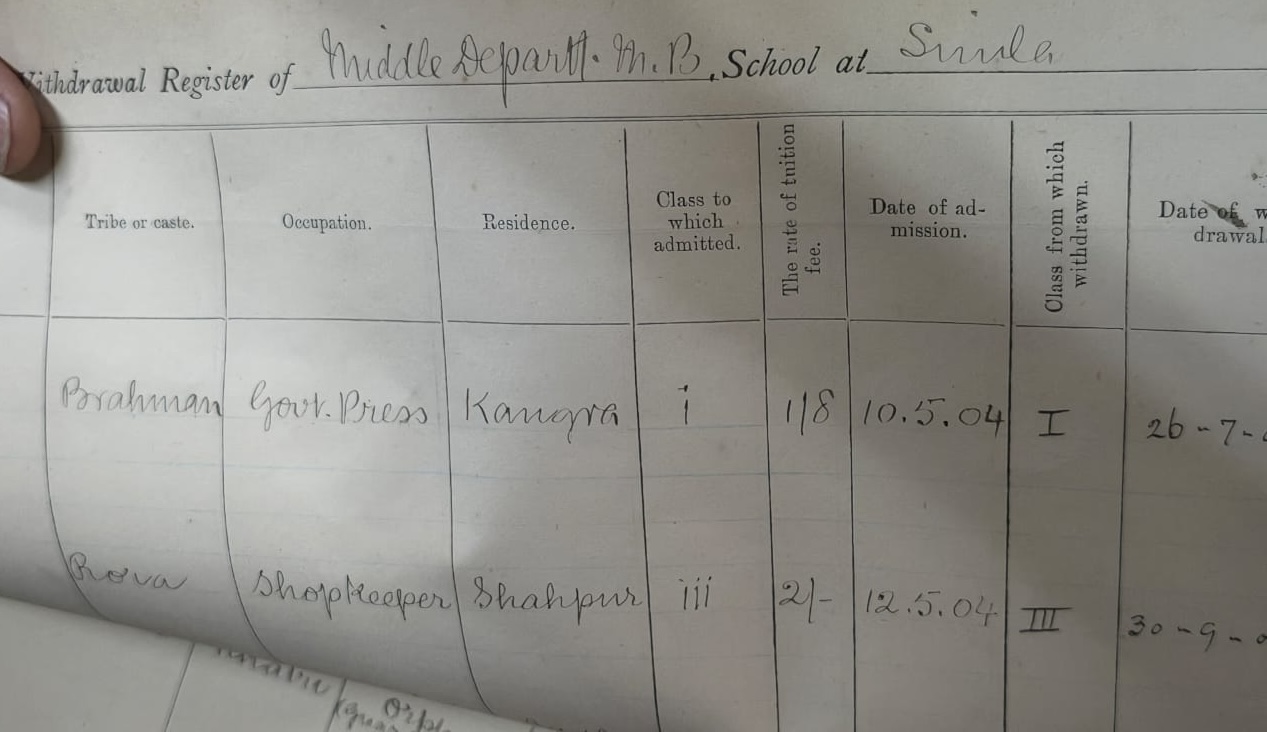 Withdrawal Register of Middle Departt. M.B. School at Simla
Tribe or caste. Occupation. Residence. Class to which admitted. The rate of tuition fee. Date of ad-mission. Class from which withdrawn. Date of w drawal
Brahman Govt. Press Kangra i 1/8 10.5.04 I 26-7-
Rova Shopkeeper Shahpur iii 2/- 12.5.04 III 30-9-